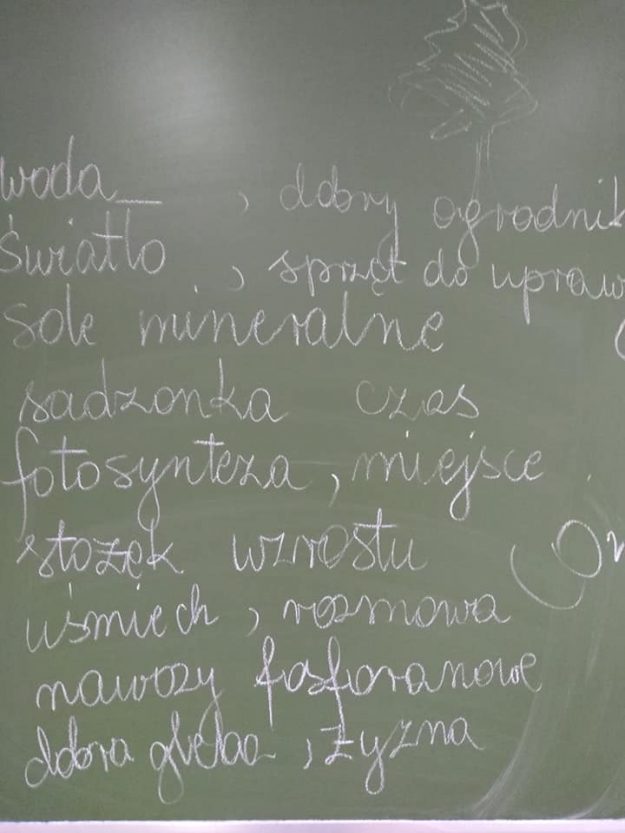 woda_ , dobry ogrodnik
światło , sprzęt do upraw
sole mineralne
sadzonka czas
fotosynteza , miejsce
stożek wzrostu
uśmiech , rozmowa
nawozy fosforanowe
dobra gleba , żyzna